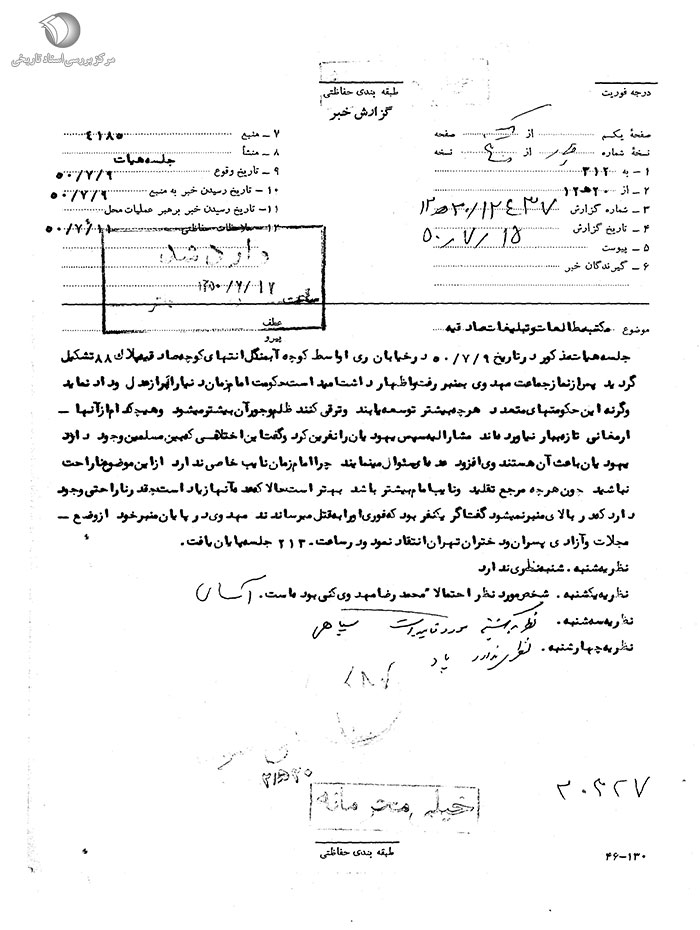 مرکز بررسی اسناد تاریخی
درجه فوریت
طبقه بندی حفاظتی
گزارش خبر
صفحهٔ یکم از صفحه
نسخهٔ شماره از نسخه
۱ – به ۳۱۲
۲ – از ۲۰ ه‍ ۱۲
۳ – شماره گزارش ۱۲ه‍ ۲۰/۱۲۴۳۷
۴ – تاریخ گزارش ۵۰/۷/۱۵
۵ – پیوست
۶ – گیرندگان خبر
۷ – منبع ۴۱۸۵
۸ – منشأ جلسه هیات
۹ – تاریخ وقوع ۵۰/۷/۹
۱۰ – تاریخ رسیدن خبر به منبع ۵۰/۷/۹
۱۱ – تاریخ رسیدن خبر برهبر عملیات محل
۱۲ – ملاحظات حفاظتی ۵۰/۷/۱۱
وارد شد
ساعت
موضوع مکتبه مطالعات و تبلیغات صادقیه
عطف
پیرو
جلسه هیات مذکور در تاریخ ۵۰/۷/۹ در خیابان ری اواسط کوچه آبمنگل انتهای کوچه صادقیه پلاک ۸۸ تشکیل
گردید پس از نماز جماعت مهدوی بمنبر رفت و اظهار داشت امید است حکومت امام زمان دنیا را پر از عدل و داد نماید
وگرنه این حکومتهای متعدد هرچه بیشتر توسعه یابند و ترقی کنند ظلم و جور آن بیشتر میشود و هیچکدام از آنها –
ارمغانی تازه ببار نیاورده اند مشارالیه سپس یهودیان را نفرین کرد و گفت این اختلافی که بین مسلمین وجود دارد
یهودیان باعث آن هستند وی افزود عده ای سئوال مینمایند چرا امام زمان نایب خاصی ندارد از این موضوع ناراحت
نباشید چون هرچه مرجع تقلید و نایب امام بیشتر باشد بهتر است حالا که عده آنها زیاد است چقدر ناراحتی وجود
دارد که در بالای منبر نمیشود گفت اگر یکنفر بود که فوری او را به قتل میرساندند مهدوی در پایان منبر خود از وضع –
مجلات و آزادی پسران و دختران تهران انتقاد نمود و در ساعت ۲۱۳۰ جلسه پایان یافت.
نظریه شنبه . شنبه نظری ندارد
نظریه یکشنبه . شخص مورد نظر احتمالا" محمد رضا مهدوی کنی بوده است .
نظریه سه شنبه . نظریه یکشنبه مورد تایید است
نظریه چهارشنبه . نظری ندارد
۲۰۳۲۷
خیلی محرمانه
طبقه بندی حفاظتی
۴۶–۱۳۰